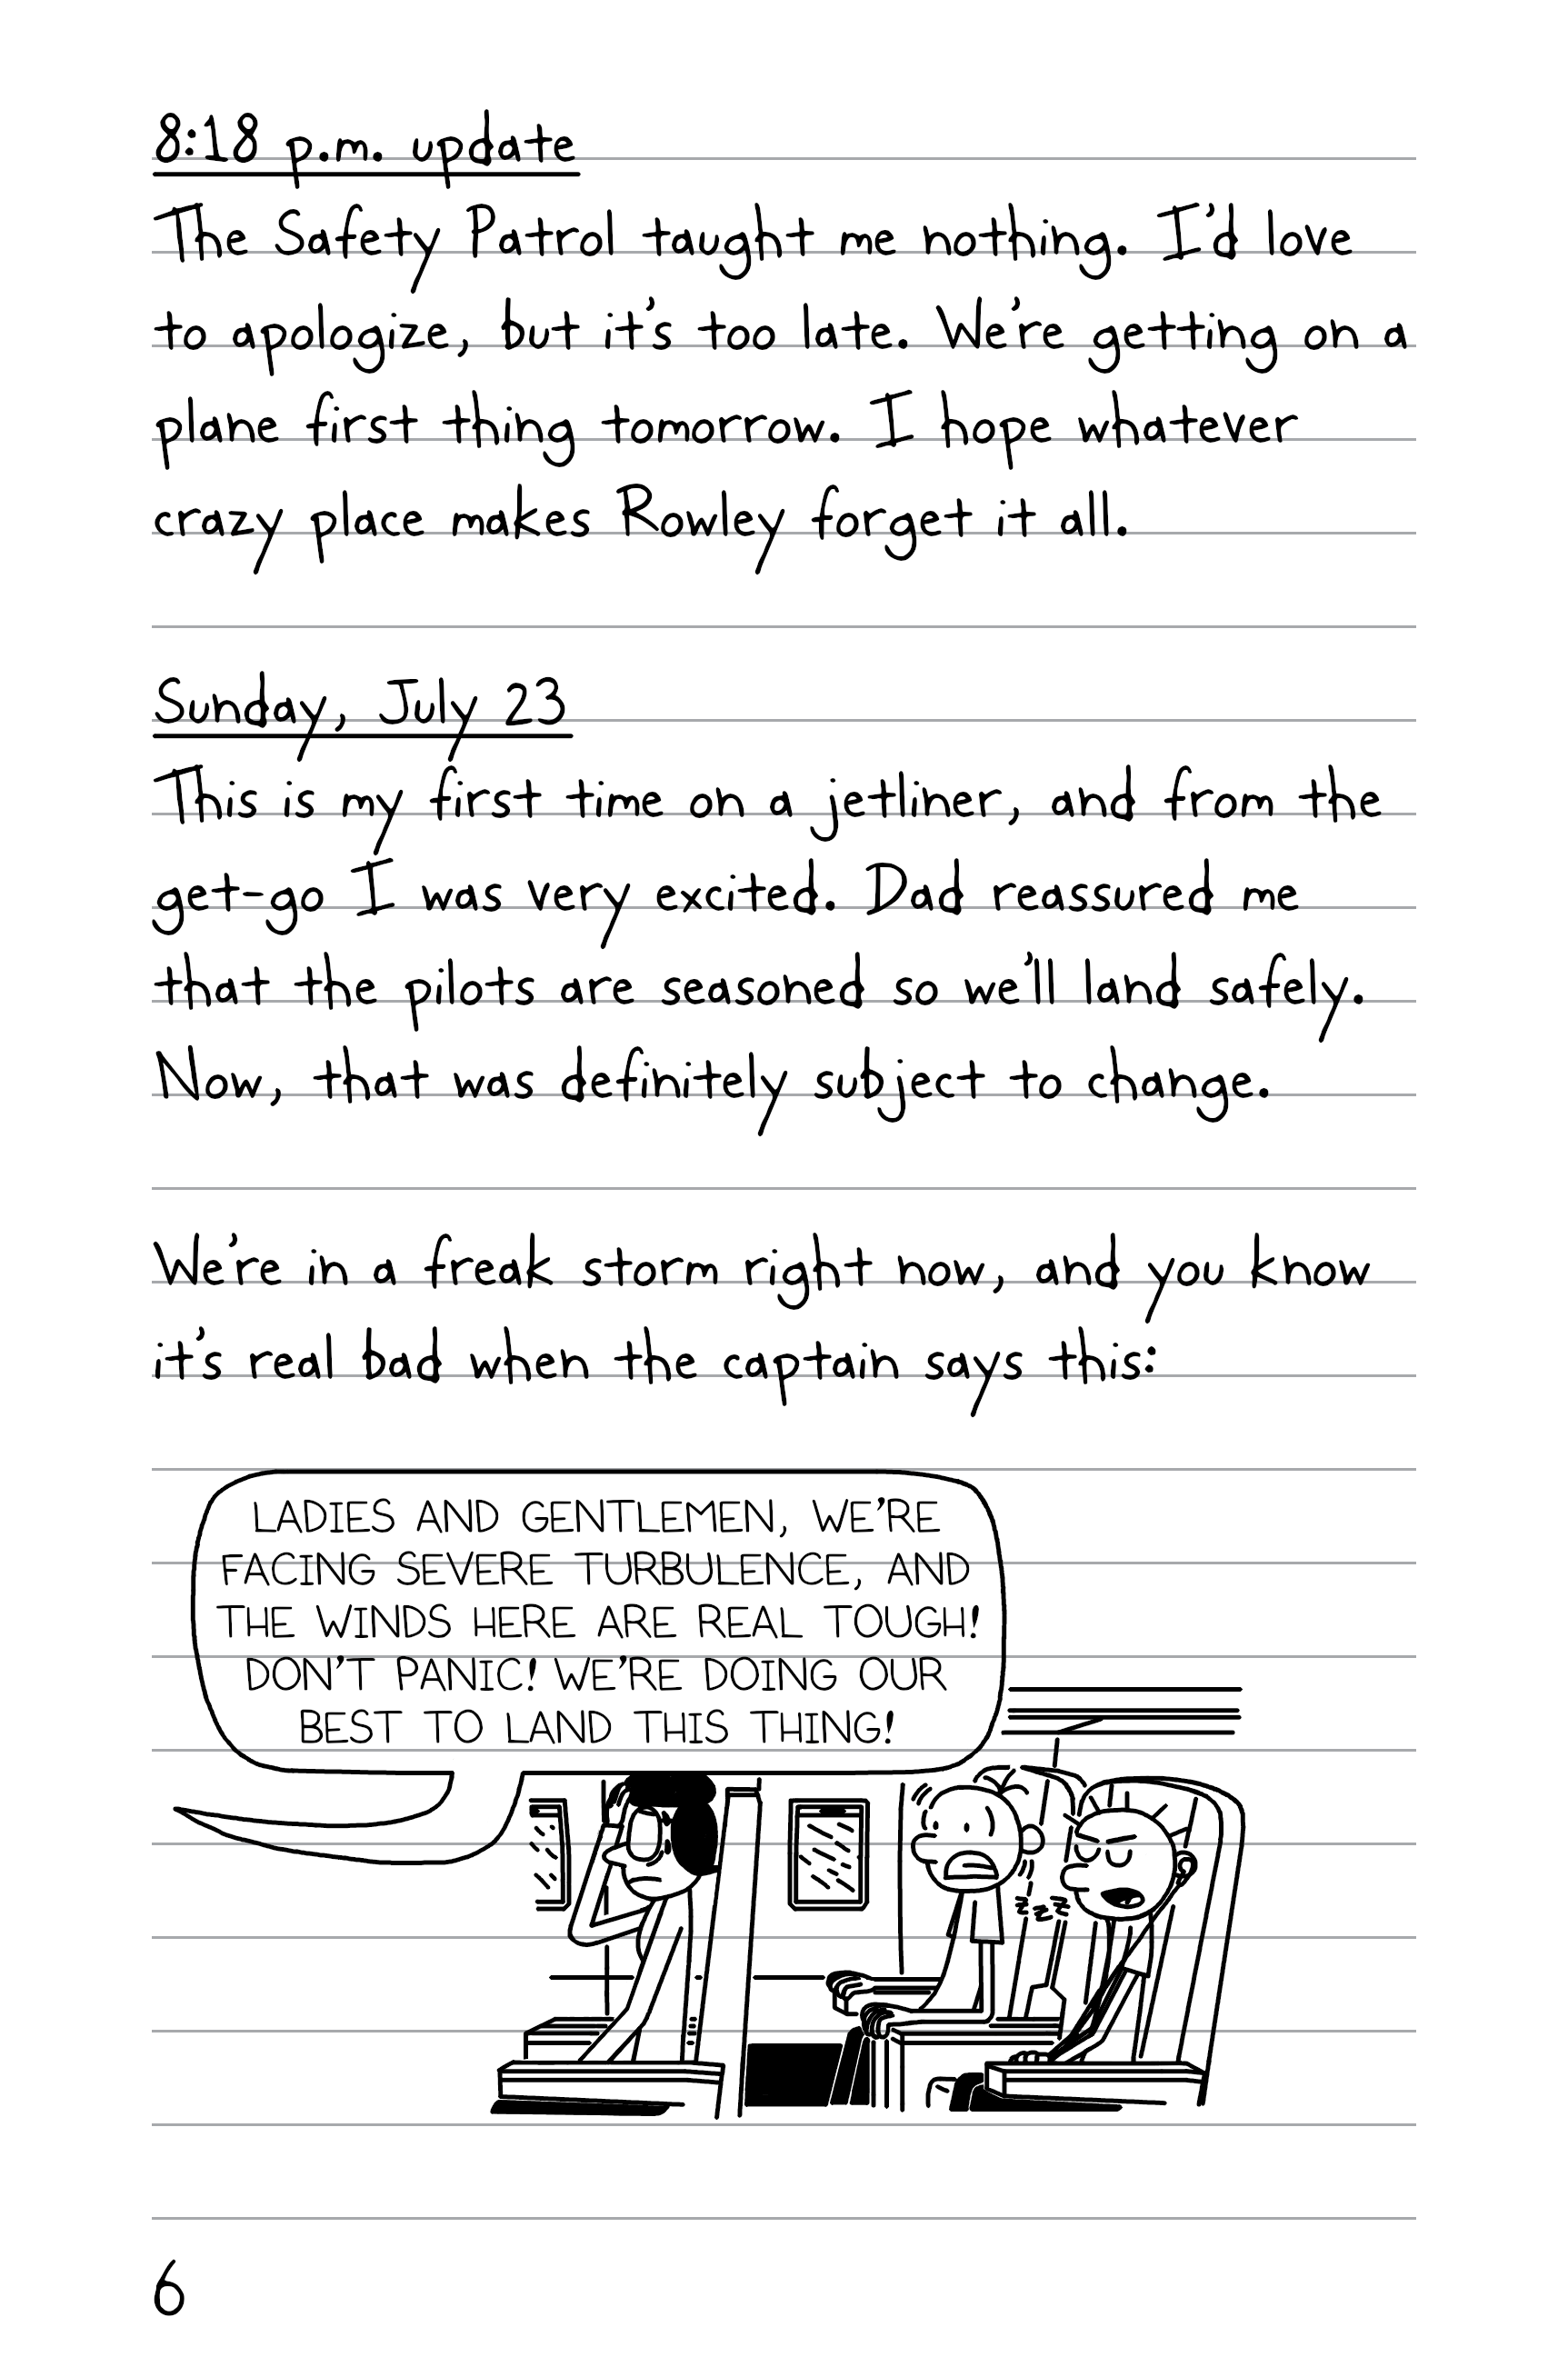 8:18 p.m. update
The Safety Patrol taught me nothing. I'd love
to apologize, but it's too late. We're getting on a
plane first thing tomorrow. I hope whatever
crazy place makes Rowley forget it all.
Sunday, July 23
This is my first time on a jetliner, and from the
get-go I was very excited. Dad reassured me
that the pilots are seasoned so we'll land safely.
Now, that was definitely subject to change.
We're in a freak storm right now, and you know
it's real bad when the captain says this:
LADIES AND GENTLEMEN, WE'RE
FACING SEVERE TURBULENCE, AND
THE WINDS HERE ARE REAL TOUGH!
DON'T PANIC! WE'RE DOING OUR
BEST TO LAND THIS THING!
z z z z z
6